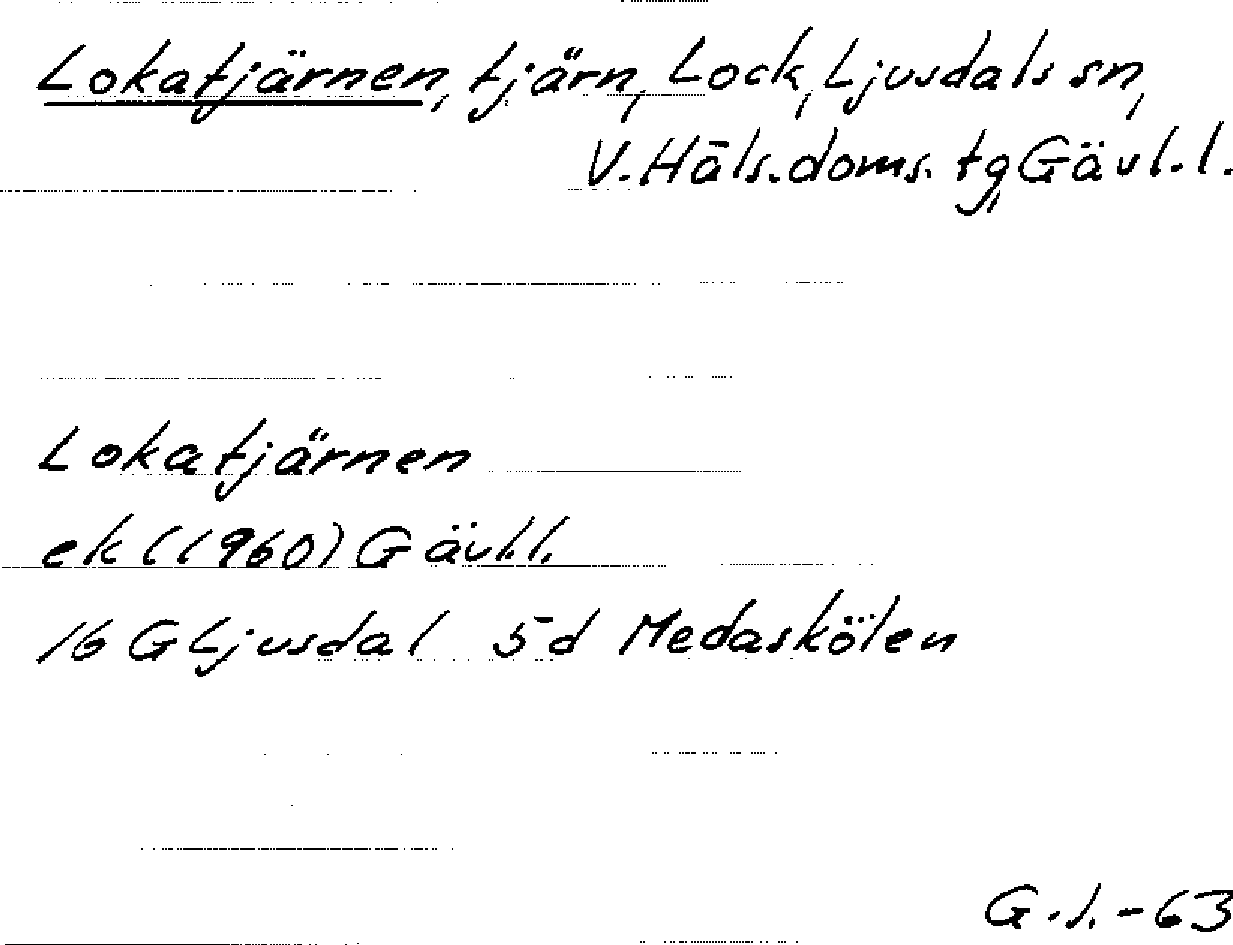 Lokatjärnen, tjärn, Lock, Ljusdals sn,
V. Häls. doms. tg, Gävl. l.
Lokatjärnen
ek (1960) Gävl. l.
16 G Ljusdal 5d Medaskölen
G. l. - 63